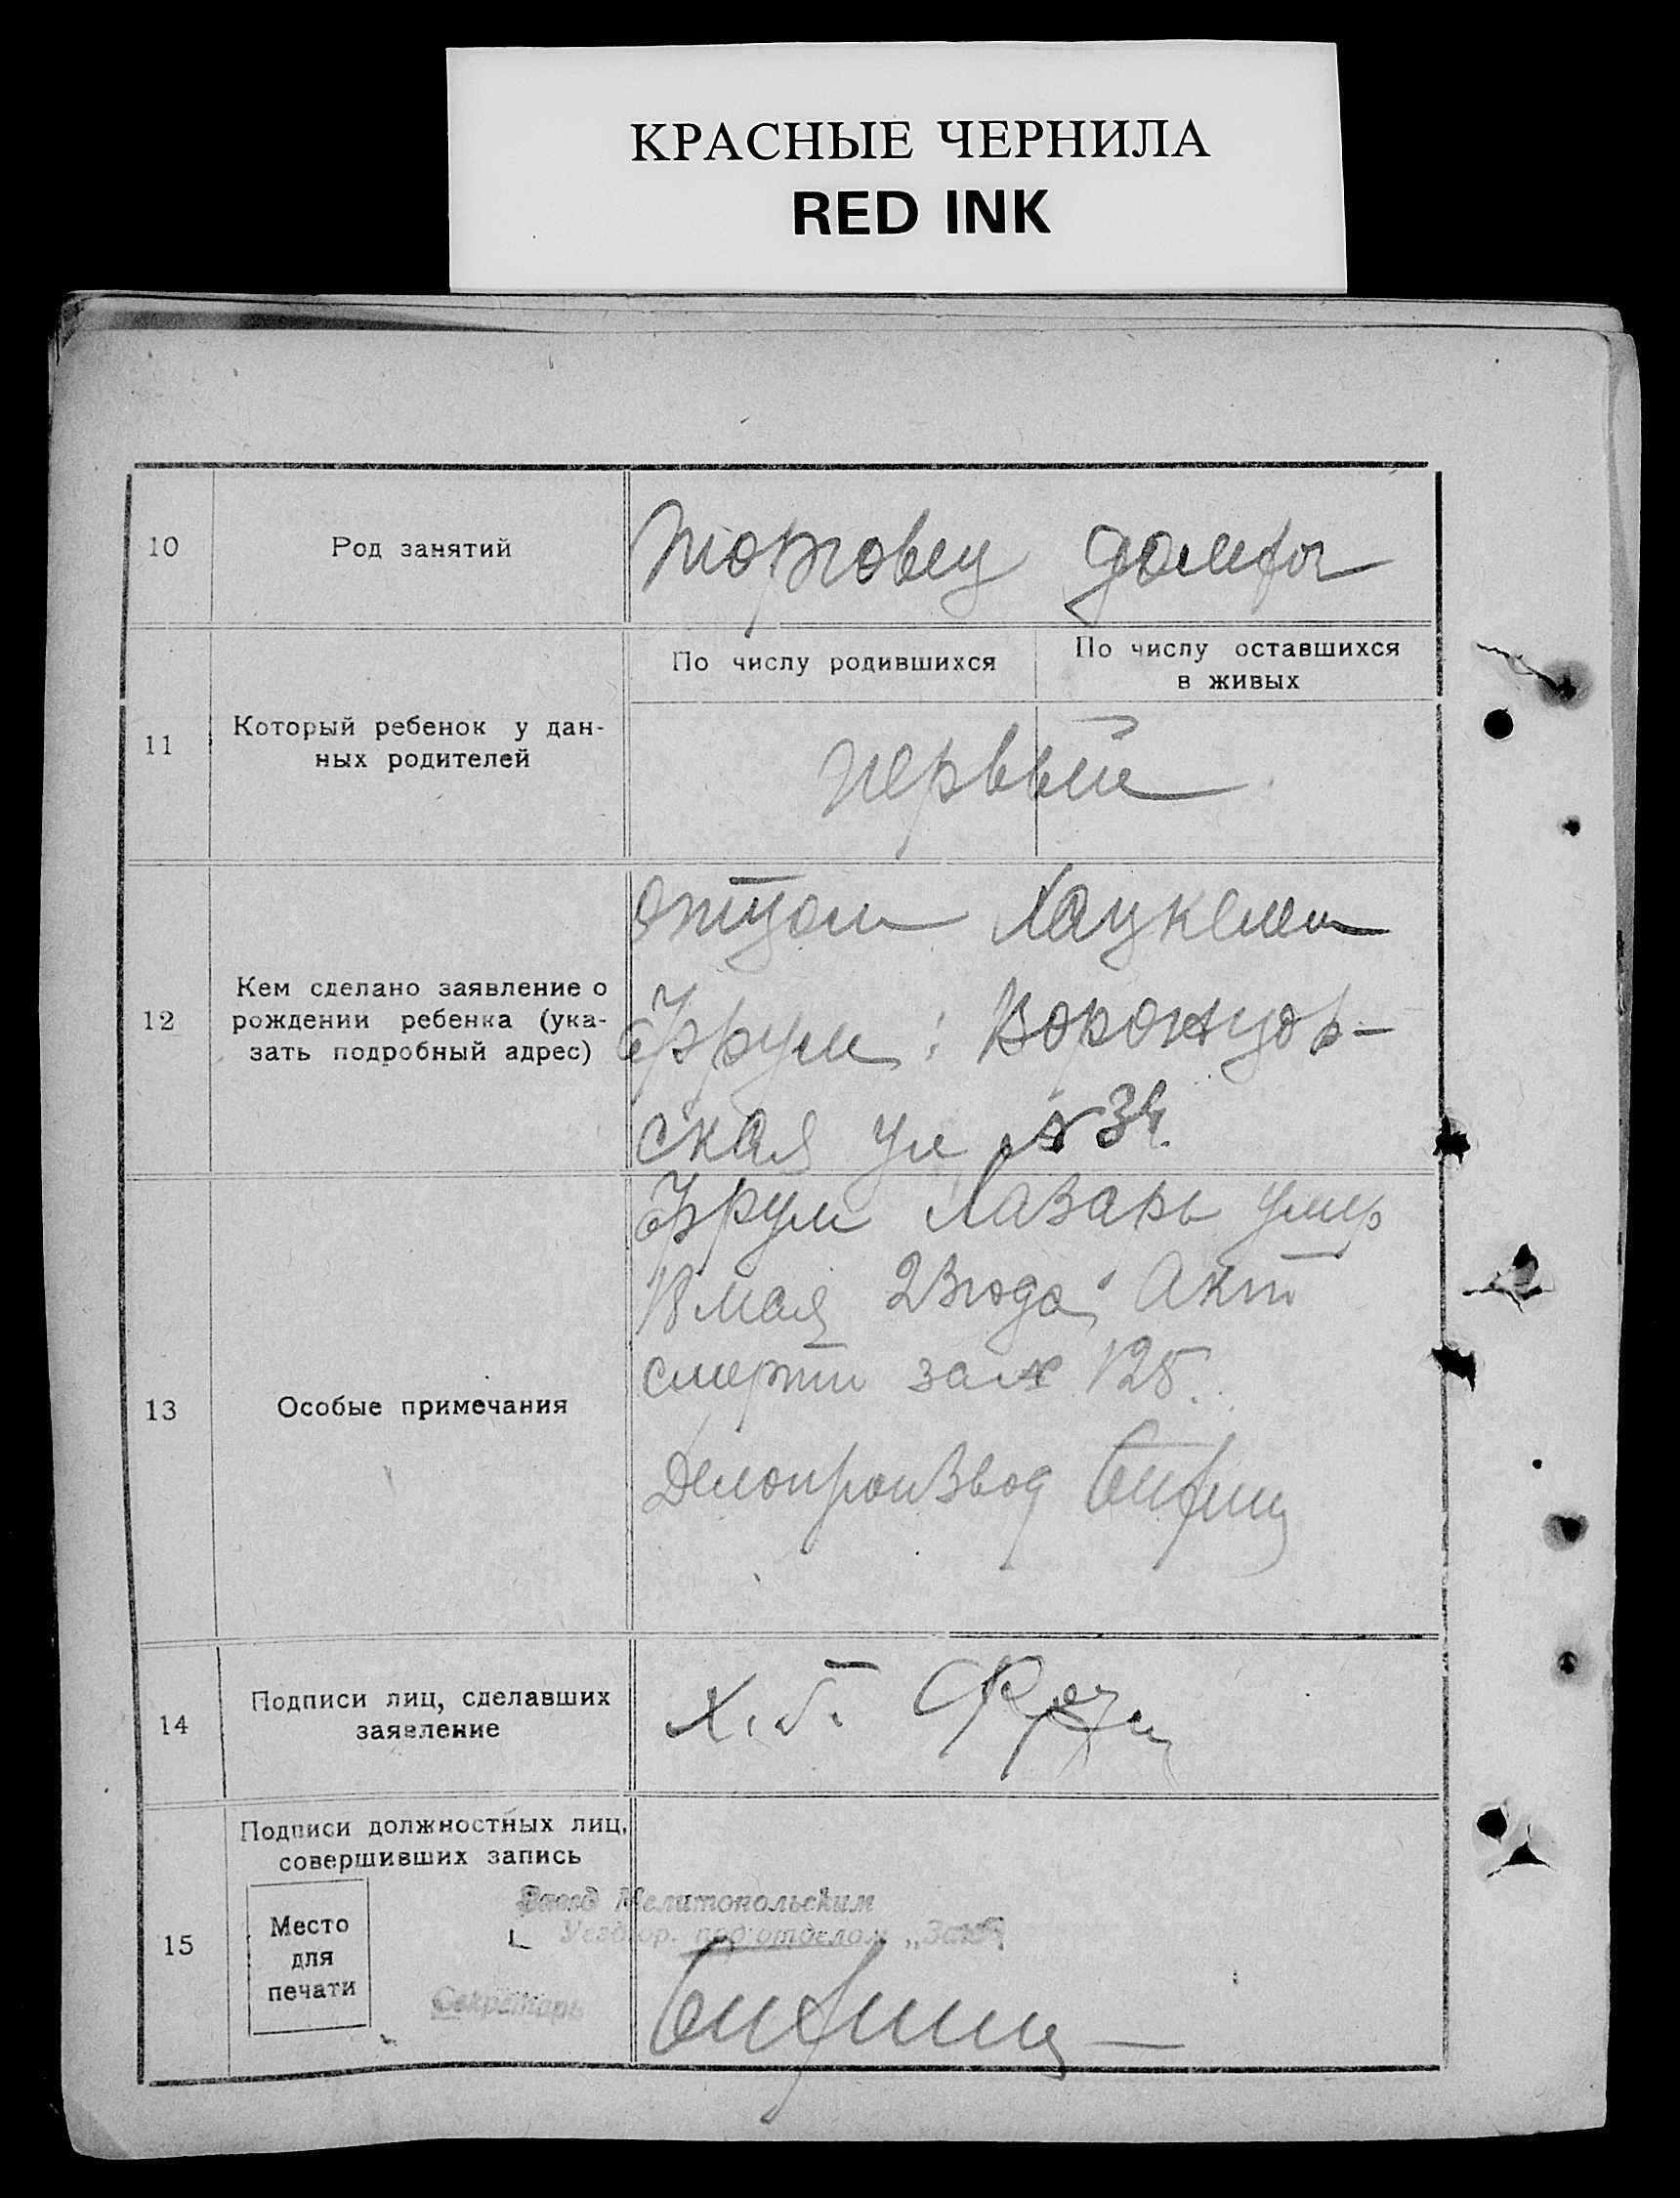 КРАСНЫЕ ЧЕРНИЛА
RED INK
10
Род занятий
торговец домхоз
11
Который ребенок у дан-
ных родителей
По числу родившихся
По числу оставшихся
в живых
первый
12
Кем сделано заявление о
рождении ребенка (ука-
зать подробный адрес)
отцом Хацкелем
Фрум: Воронцов-
ская ул № 34.
13
Особые примечания
Фрум Лазарь умер
18 мая 23 года. Акт
смерти за № 125.
Делопроизвод
14
Подписи лиц, сделавших
заявление
Х. Б. Фрум
15
Подписи должностных лиц,
совершивших запись
Место
для
печати
Завед Мелитопольским
Уездгор. под'отделом „Загс"
Секретарь